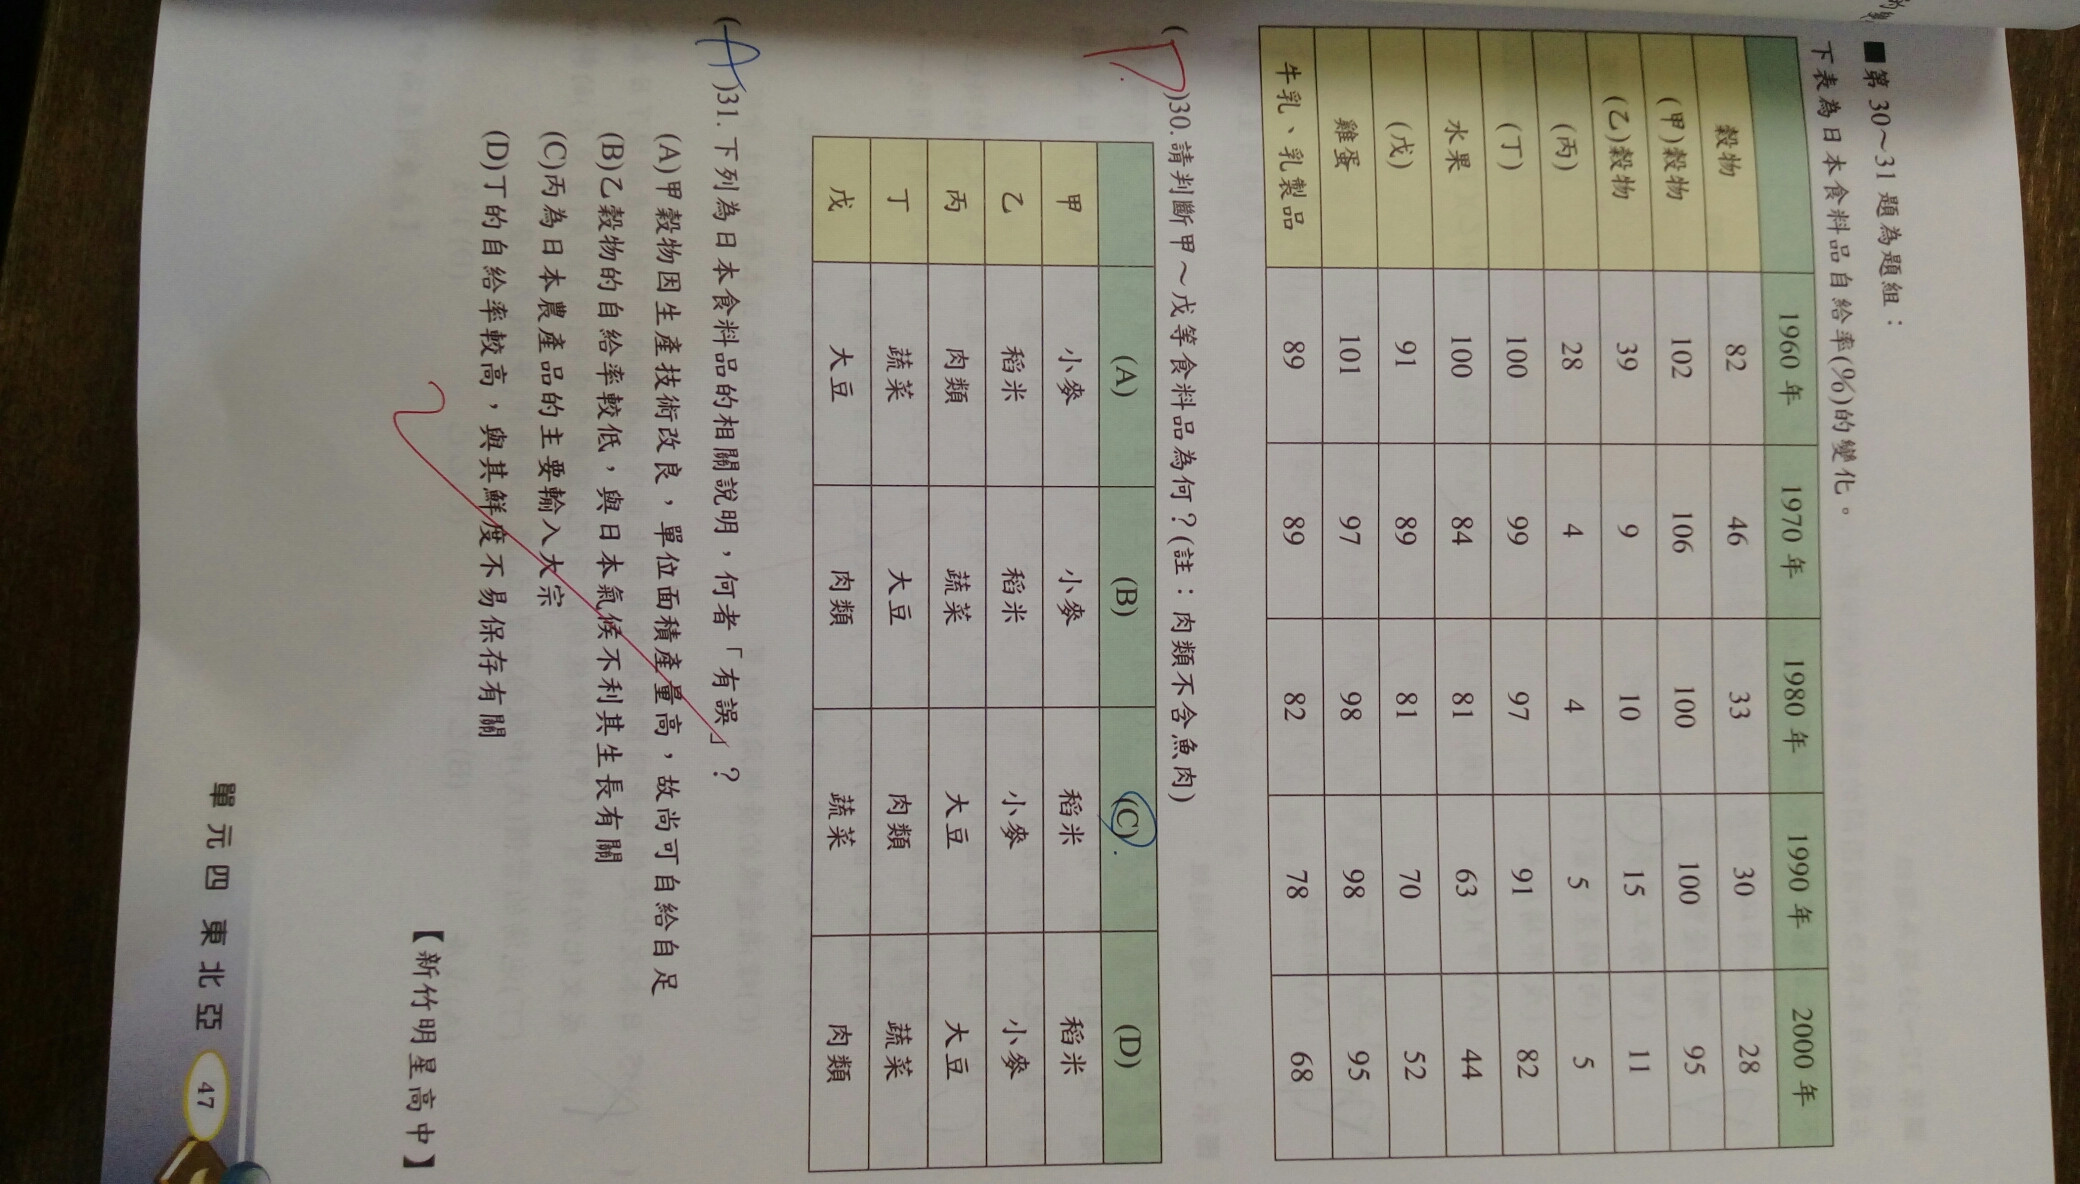 ■第 30～31 題為題組：
下表為日本食料品自給率(%)的變化。
1960 年 1970 年 1980 年 1990 年 2000 年
穀物 82 46 33 30 28
(甲)穀物 102 106 100 100 95
(乙)穀物 39 9 10 15 11
(丙) 28 4 4 5 5
(丁) 100 99 97 91 82
水果 100 84 81 63 44
(戊) 91 89 81 70 52
雞蛋 101 97 98 98 95
牛乳、乳製品 89 89 82 78 68
( D )30. 請判斷甲～戊等食料品為何？(註：肉類不含魚肉)
(A) (B) (C) (D)
甲 小麥 小麥 稻米 稻米
乙 稻米 稻米 小麥 小麥
丙 肉類 蔬菜 大豆 大豆
丁 蔬菜 大豆 肉類 蔬菜
戊 大豆 肉類 蔬菜 肉類
( A )31. 下列為日本食料品的相關說明，何者「有誤」？
(A)甲穀物因生產技術改良，單位面積產量高，故尚可自給自足
(B)乙穀物的自給率較低，與日本氣候不利其生長有關
(C)丙為日本農產品的主要輸入大宗
(D)丁的自給率較高，與其鮮度不易保存有關
【新竹明星高中】
單元四 東北亞 47